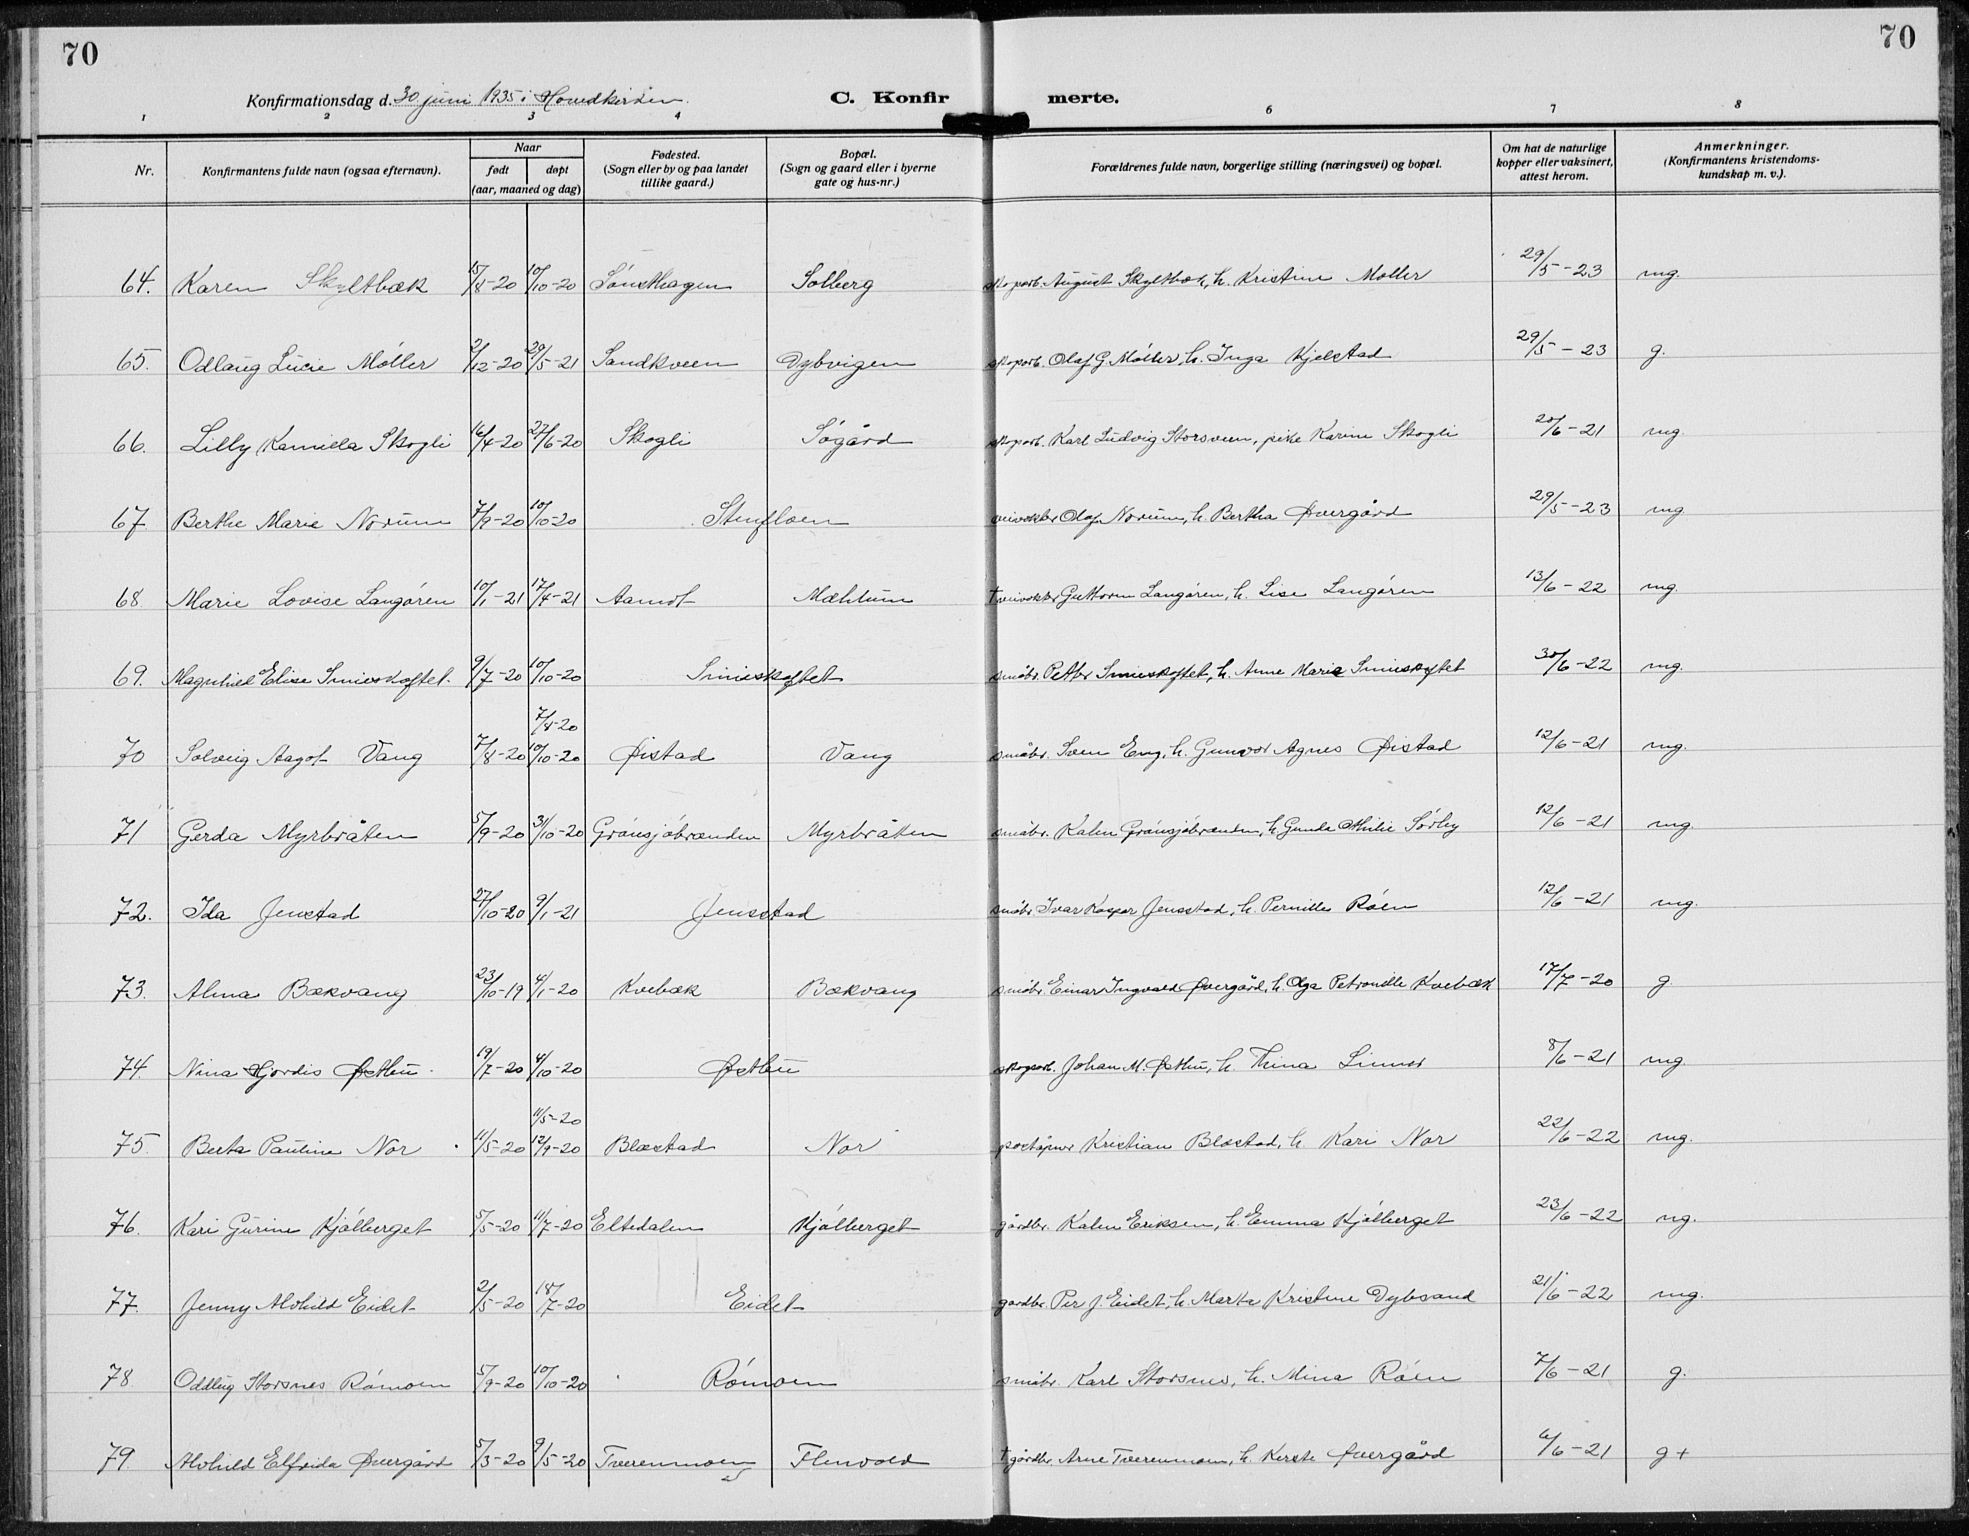 70
70
Konfirmationsdag d. 30 juni 1935 i Hovedkirken.
C. Konfirmerte.
1 2 3 4 6 7 8
Nr. Konfirmantens fulde navn (ogsaa efternavn). Naar født døpt (aar, maaned og dag) Fødested. (Sogn eller by og paa landet tillike gaard.) Bopæl. (Sogn og gaard eller i byerne gate og hus-nr.) Forældrenes fulde navn, borgerlige stilling (næringsvei) og bopæl. Om hat de naturlige kopper eller vaksinert, attest herom. Anmerkninger. (Konfirmantens kristendomskundskap m. v.).
64. Karen Skyltbæk 15/8-20 10/10-20 Sønsthagen Solberg skogarb. August Skyltbæk, h. Kristine Møller 29/5-23 mg.
65. Odlaug Lucie Møller 2/12-20 29/5-21 Sandkveen Dybvigen skogarb. Olaf G. Møller, h. Inga Kjelstad 29/5-23 g.
66. Lilly Kamilla Skogli 16/4-20 27/6-20 Skogli Søgård skogarb. Karl Ludvig Storsveen, pike Karine Skogli 20/6-21 mg.
67 Berthe Marie Norum 7/9-20 10/10-20 Stenfloen veivokter Olaf Norum, h. Bertha Øvergård 29/5-23 mg
68. Marie Lovise Langøren 10/1-21 17/4-21 Aamot Mæhlum † veivokter Guttorm Langøren, h. Lise Langøren 13/6-22 mg.
69. Magnhild Elise Smieskoftet. 9/7-20 10/10-20 Smieskoftet småbr. Petter Smieskoftet, h. Anne Marie Smieskoftet 30/6-22 mg.
7/8-20
70 Solveig Aagot Vang 7/8-20 10/10-20 Øistad Vang småbr. Sven Eng, h. Gunvor Agnes Øistad 12/6-21 mg.
71 Gerda Myrbråten 5/9-20 31/10-20 Grønsjøbrænden Myrbråten småbr. Kalen Grønsjøbrænden, h. Gunda Othilie Sørby 12/6-21 mg
72. Ida Jenstad 27/10-20 9/1-21 Jensstad småbr. Ivar Kasper Jensstad, h. Pernille Røen 12/6-21 mg.
73. Alma Bækvang 23/10-19 4/1-20 Kvebæk Bækvang småbr. Einar Ingvald Øvergård, h. Olga Petronille Kvebæk 17/7-20 g
74. Nina Hjordis Østhu 19/7-20 4/10-20 Østhu skogarb. Johan M. Østhu, h. Thina Linnes 8/6-21 mg.
11/5-20
75. Berta Pauline Nor 11/5-20 12/9-20 Blæstad Nor poståpner Kristian Blæstad, h. Kari Nor 22/6-22 mg.
76. Kari Gurine Kjølberget 5/5-20 11/7-20 Eltedalen Kjølberget gårdbr. Kalen Eriksen, h. Emma Kjølberget 23/6-22 ng.
77. Jenny Alvhild Eidet 2/5-20 18/7-20 Eidet gardbr. Per J. Eidet, h. Marta Kristine Dybsand 21/6-22 mg.
78 Oddlug Storsnes Rømoen 5/9-20 10/10-20 Rømoen småbr. Karl Storsnes, h. Mina Røen 7/6-21 g.
79. Alvhild Elfrida Øvergård 5/3-20 9/5-20 Tverenmoen Flenvold † gårdbr. Arne Tverenmoen, h. Kerste Øvergård 6/6-21 g+